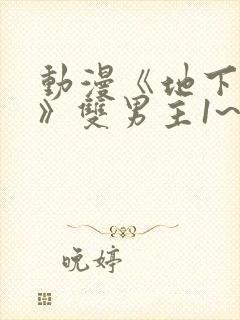 動漫《地下
》雙男主1~
晚婷